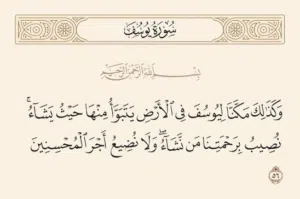 سُورَةُ يُوسُفَ
بِسْمِ ٱللَّهِ ٱلرَّحْمَٰنِ ٱلرَّحِيمِ
وَكَذَٰلِكَ مَكَّنَّا لِيُوسُفَ فِي ٱلْأَرْضِ يَتَبَوَّأُ مِنْهَا حَيْثُ يَشَآءُ ۚ
نُصِيبُ بِرَحْمَتِنَا مَن نَّشَآءُ ۖ وَلَا نُضِيعُ أَجْرَ ٱلْمُحْسِنِينَ
٥٦